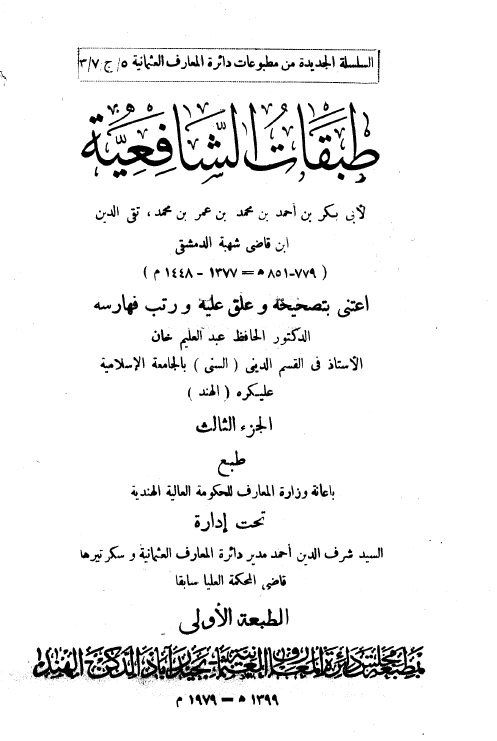 السلسلة الجديدة من مطبوعات دائرة المعارف العثمانية ٥/ج ٣/٧
طبقات الشافعية
لأبى بكر بن أحمد بن محمد بن عمر بن محمد، تقى الدين
ابن قاضى شهبة الدمشقى
( ٧٧٩-٨٥١ ھ = ١٣٧٧ - ١٤٤٨ م )
اعتنى بتصحيحه و علق عليه و رتب فهارسه
الدكتور الحافظ عبد العليم خان
الأستاذ فى القسم الدينى ( السنى ) بالجامعة الإسلامية
عليكره ( الهند )
الجزء الثالث
طبع
باعانة وزارة المعارف للحكومة العالية الهندية
تحت إدارة
السيد شرف الدين أحمد مدير دائرة المعارف العثمانية و سكرتيرها
قاضى المحكمة العليا سابقا
الطبعة الأولى
بمطبعة مجلس دائرة المعارف العثمانية بحيدرآباد الدكن الهند
١٣٩٩ ھ — ١٩٧٩ م